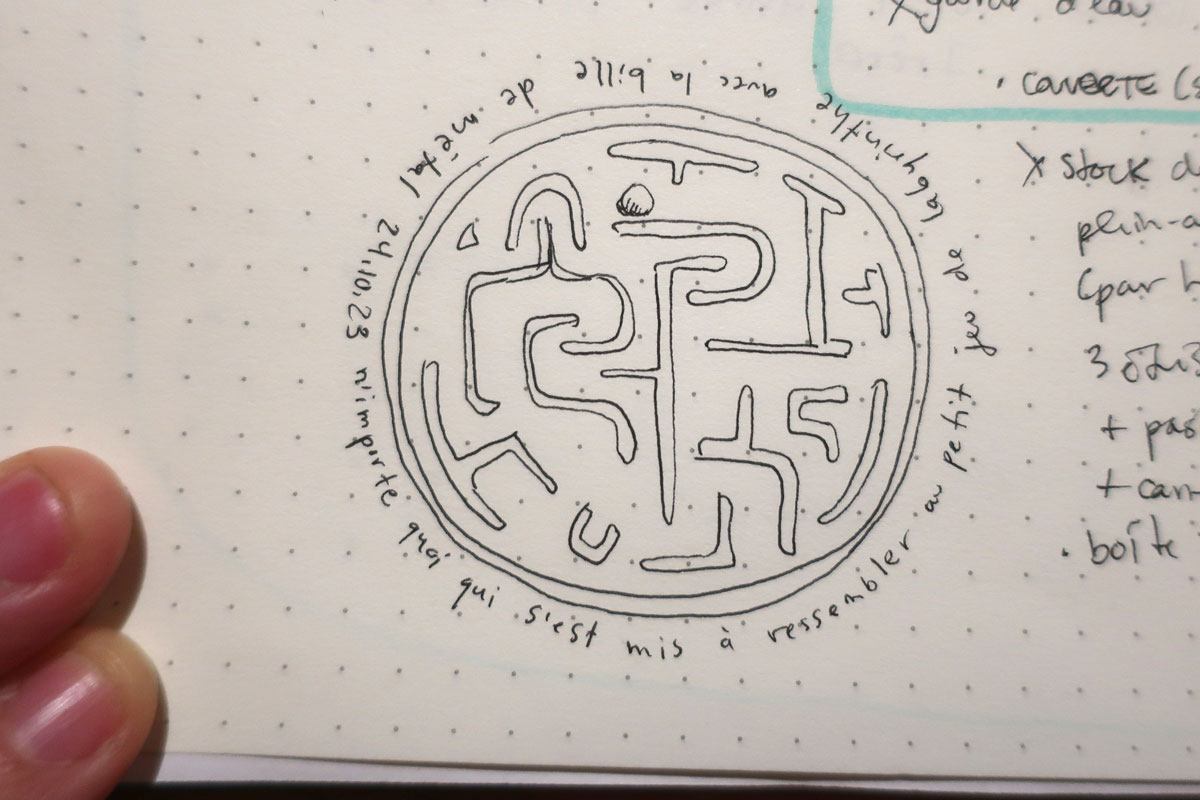 24.10.23 n'importe quoi qui s'est mis à ressembler au petit jeu de labyrinthe avec la bille de métal
d'eau
· COUVERTE (
X Stock d
plein-a
(par h
3
+ pas
+ can
· boîte